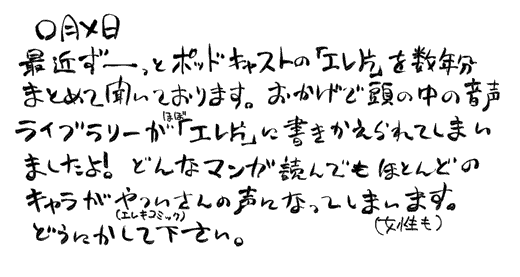 〇月×日
最近ずーーっとポッドキャストの「エレ片」を数年分
まとめて聞いております。おかげで頭の中の音声
ライブラリーがほぼ「エレ片」に書きかえられてしまい
ましたよ! どんなマンガ読んでもほとんどの
キャラがやついさんの声になってしまいます。
(エレキコミック)
(女性も)
どうにかして下さい。